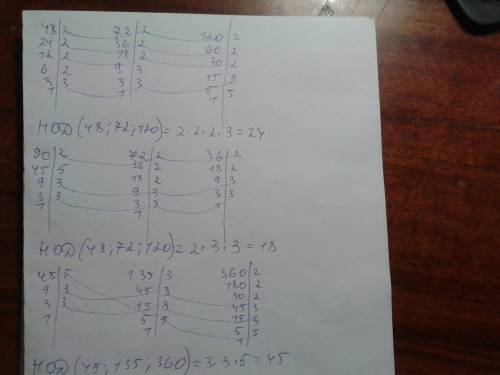 48|2 72|2 120|2
24|2 36|2 60|2
12|2 18|2 30|2
6|2 9|3 15|3
3|3 3|3 5|5
1| 1| 1|
НОД(48;72;120)=2·2·2·3=24
90|2 72|2 36|2
45|5 36|2 18|2
9|3 18|2 9|3
3|3 9|3 3|3
1| 3|3 1|
1|
НОД(48;72;120)=2·3·3=18
45|5 135|3 360|2
9|3 45|3 180|2
3|3 15|3 90|2
1| 5|5 45|3
1| 15|3
5|5
1|
НОД(45;135;360)=3·3·5=45